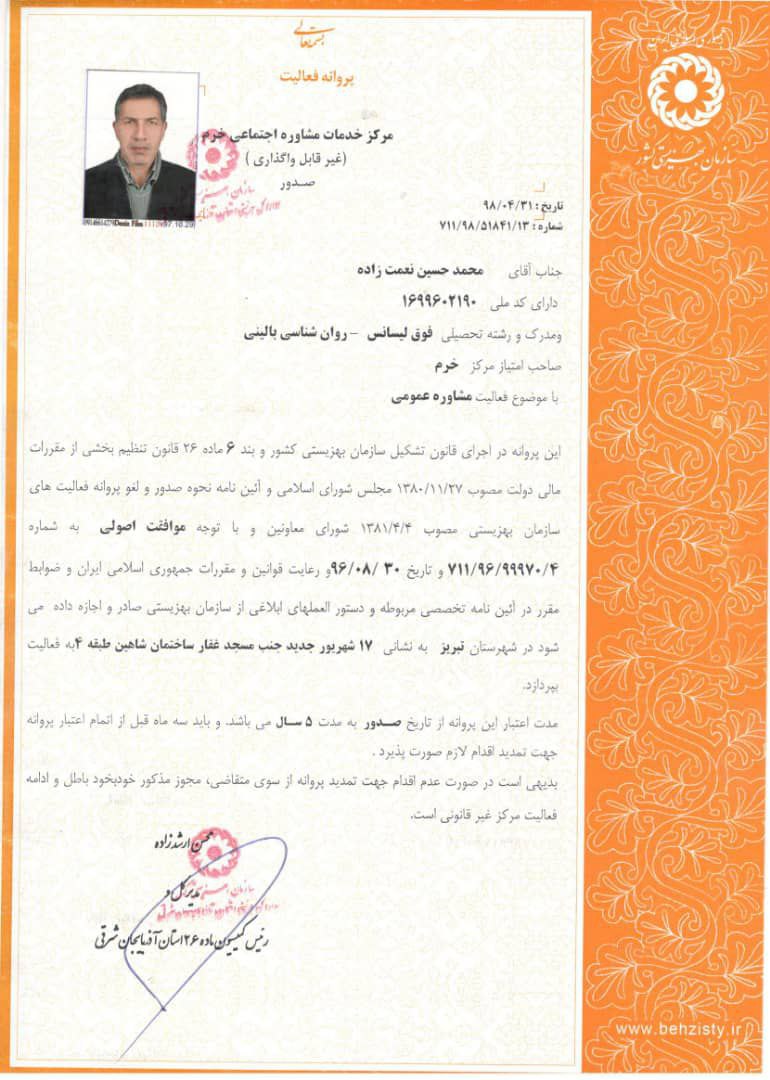 بسمه تعالی
پروانه فعالیت
جمهوری اسلامی ایران
سازمان بهزیستی کشور
مرکز خدمات مشاوره اجتماعی خرم
(غیر قابل واگذاری )
صدور
تاریخ : ۹۸/۰۴/۳۱
شماره : ۷۱۱/۹۸/۵۱۸۴۱/۱۳
جناب آقای محمد حسین نعمت زاده
دارای کد ملی ۱۶۹۹۶۰۲۱۹۰
ومدرک و رشته تحصیلی فوق لیسانس – روان شناسی بالینی
صاحب امتیاز مرکز خرم
با موضوع فعالیت مشاوره عمومی
این پروانه در اجرای قانون تشکیل سازمان بهزیستی کشور و بند ۶ ماده ۲۶ قانون تنظیم بخشی از مقررات
مالی دولت مصوب ۱۳۸۰/۱۱/۲۷ مجلس شورای اسلامی و آئین نامه نحوه صدور و لغو پروانه فعالیت های
سازمان بهزیستی مصوب ۱۳۸۱/۴/۴ شورای معاونین و با توجه موافقت اصولی به شماره
۷۱۱/۹۶/۹۹۹۷۰/۴ و تاریخ ۳۰ /۹۶/۰۸و رعایت قوانین و مقررات جمهوری اسلامی ایران و ضوابط
مقرر در آئین نامه تخصصی مربوطه و دستور العملهای ابلاغی از سازمان بهزیستی صادر و اجازه داده می
شود در شهرستان تبریز به نشانی ۱۷ شهریور جدید جنب مسجد غفار ساختمان شاهین طبقه ۴به فعالیت
بپردازد.
مدت اعتبار این پروانه از تاریخ صـدور به مدت ۵ سال می باشد. و باید سه ماه قبل از اتمام اعتبار پروانه
جهت تمدید اقدام لازم صورت پذیرد .
بدیهی است در صورت عدم اقدام جهت تمدید پروانه از سوی متقاضی، مجوز مذکور خودبخود باطل و ادامه
فعالیت مرکز غیر قانونی است.
محسن ارشدزاده
مدیر کل و
رئیس کمیسیون ماده ۲۶ استان آذربایجان شرقی
www.behzisty.ir